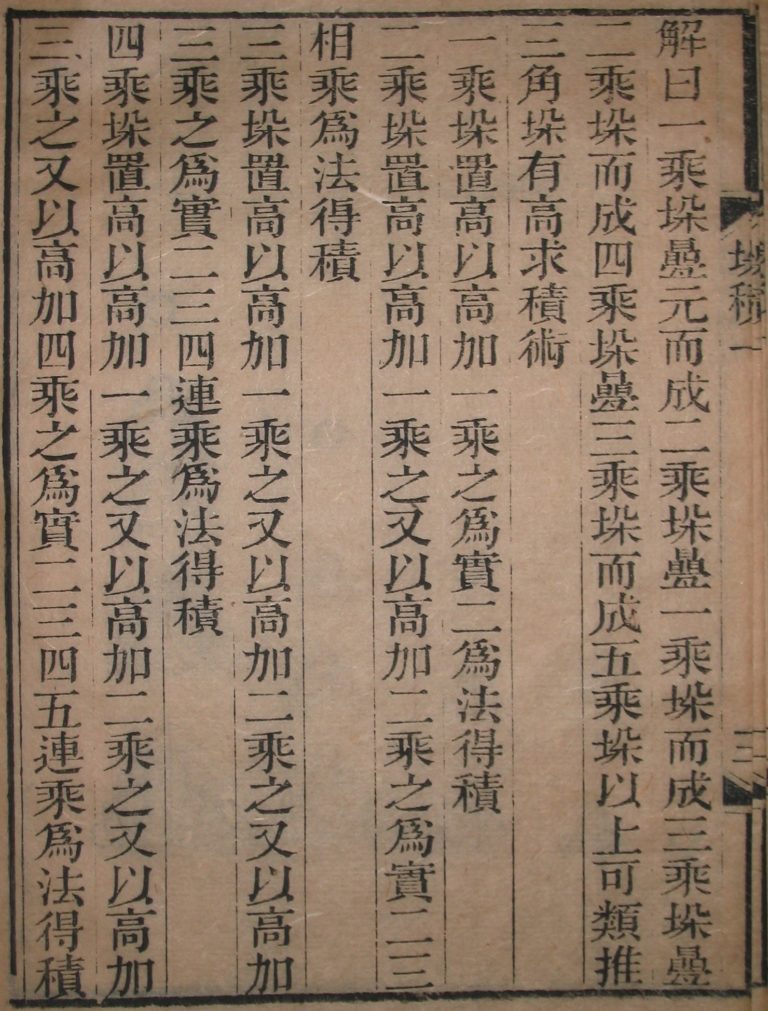 垛積一
三
解曰一乘垛疊元而成二乘垛疊一乘垛而成三乘垛疊
二乘垛而成四乘垛疊三乘垛而成五乘垛以上可類推
三角垛有高求積術
一乘垛置高以高加一乘之爲實二爲法得積
二乘垛置高以高加一乘之又以高加二乘之爲實二三
相乘爲法得積
三乘垛置高以高加一乘之又以高加二乘之又以高加
三乘之爲實二三四連乘爲法得積
四乘垛置高以高加一乘之又以高加二乘之又以高加
三乘之又以高加四乘之爲實二三四五連乘爲法得積